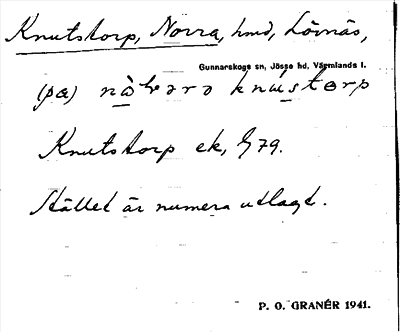 Knutstorp, Norra, hmd, Lövnäs,
Gunnarskogs sn, Jösse hd, Värmlands l.
(pa) knústorp
Knutstorp ek, G 79.
Stället är numera utlagt.
P. O. GRANÉR 1941.